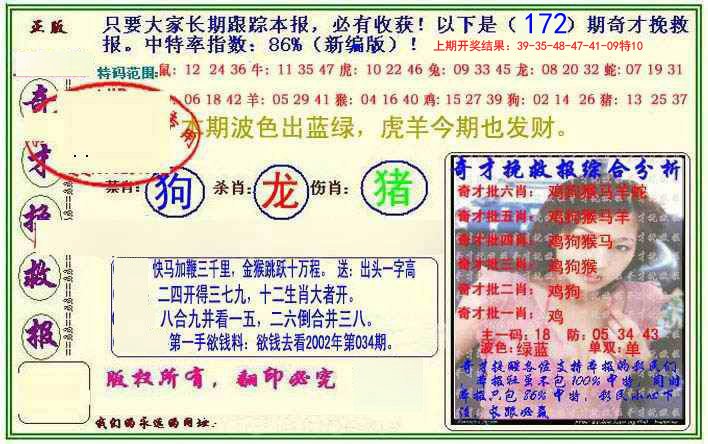 正版
只要大家长期跟踪本报，必有收获！以下是（172）期奇才挽救
报。中特率指数：86%（新编版）！
上期开奖结果：39-35-48-47-41-09特10
特码范围:鼠: 12 24 36 牛: 11 35 47 虎: 10 22 46 兔: 09 33 45 龙: 08 20 32 蛇: 07 19 31
06 18 42 羊: 05 29 41 猴: 04 16 40 鸡: 15 27 39 狗: 02 14 26 猪: 13 25 37
本期波色出蓝绿，虎羊今期也发财。
禁肖: 狗 杀肖: 龙 伤肖: 猪
奇才
救报
快马加鞭三千里，金猴跳跃十万程。 送：出头一字高
二四开得三七九，十二生肖大者开。
八合九并看一五，二六倒合并三八。
第一手欲钱料：欲钱去看2002年第034期。
版权所有，翻印必究
我们的永远的网址:
奇才挽救报综合分析
奇才批六肖: 鸡狗猴马羊蛇
奇才批五肖: 鸡狗猴马羊
奇才批四肖: 鸡狗猴马
奇才批三肖: 鸡狗猴
奇才批二肖: 鸡狗
奇才批一肖: 鸡
主一码: 18 防: 05 34 43
波色: 绿蓝 单双: 单
奇才挽救各位支持本报的彩民们
本报虽不包100%中特，同时
本报只包86%中特，彩民小心下
注